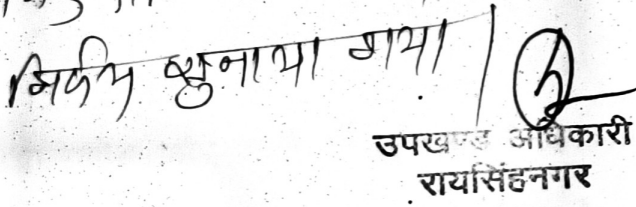 निर्णय सुनाया गया |
उपखण्ड अधिकारी
रायसिंहनगर